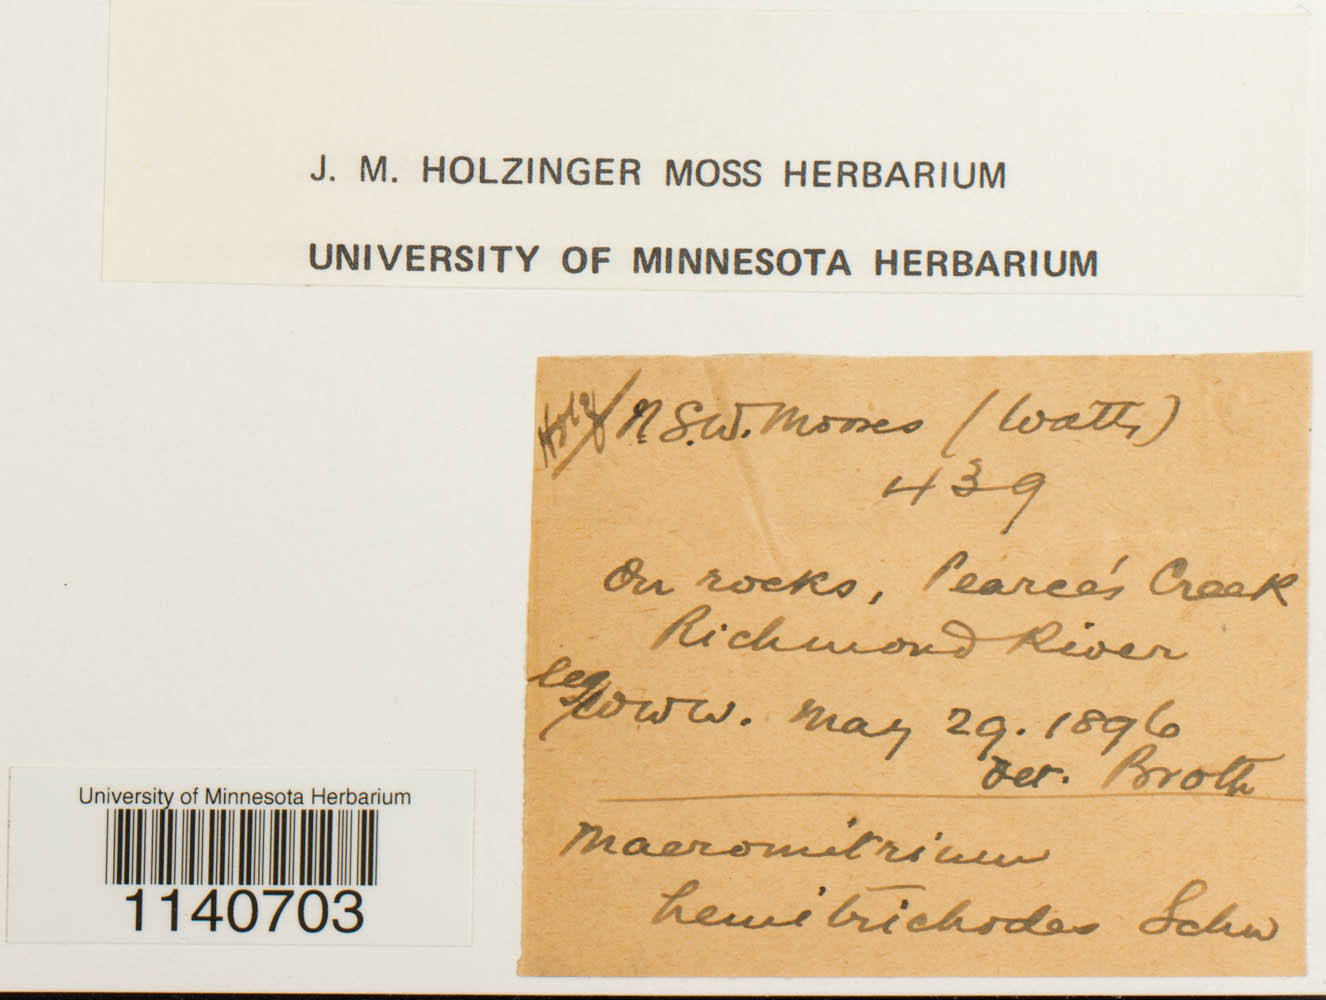 J. M. HOLZINGER MOSS HERBARIUM
UNIVERSITY OF MINNESOTA HERBARIUM
Holz N.S.W. Mosses (Watts)
439
On rocks, Pearce's Creek
Richmond River
leg WWW. May 29. 1896
det. Broth
Macromitrium
hemitrichodes Schw
University of Minnesota Herbarium
1140703